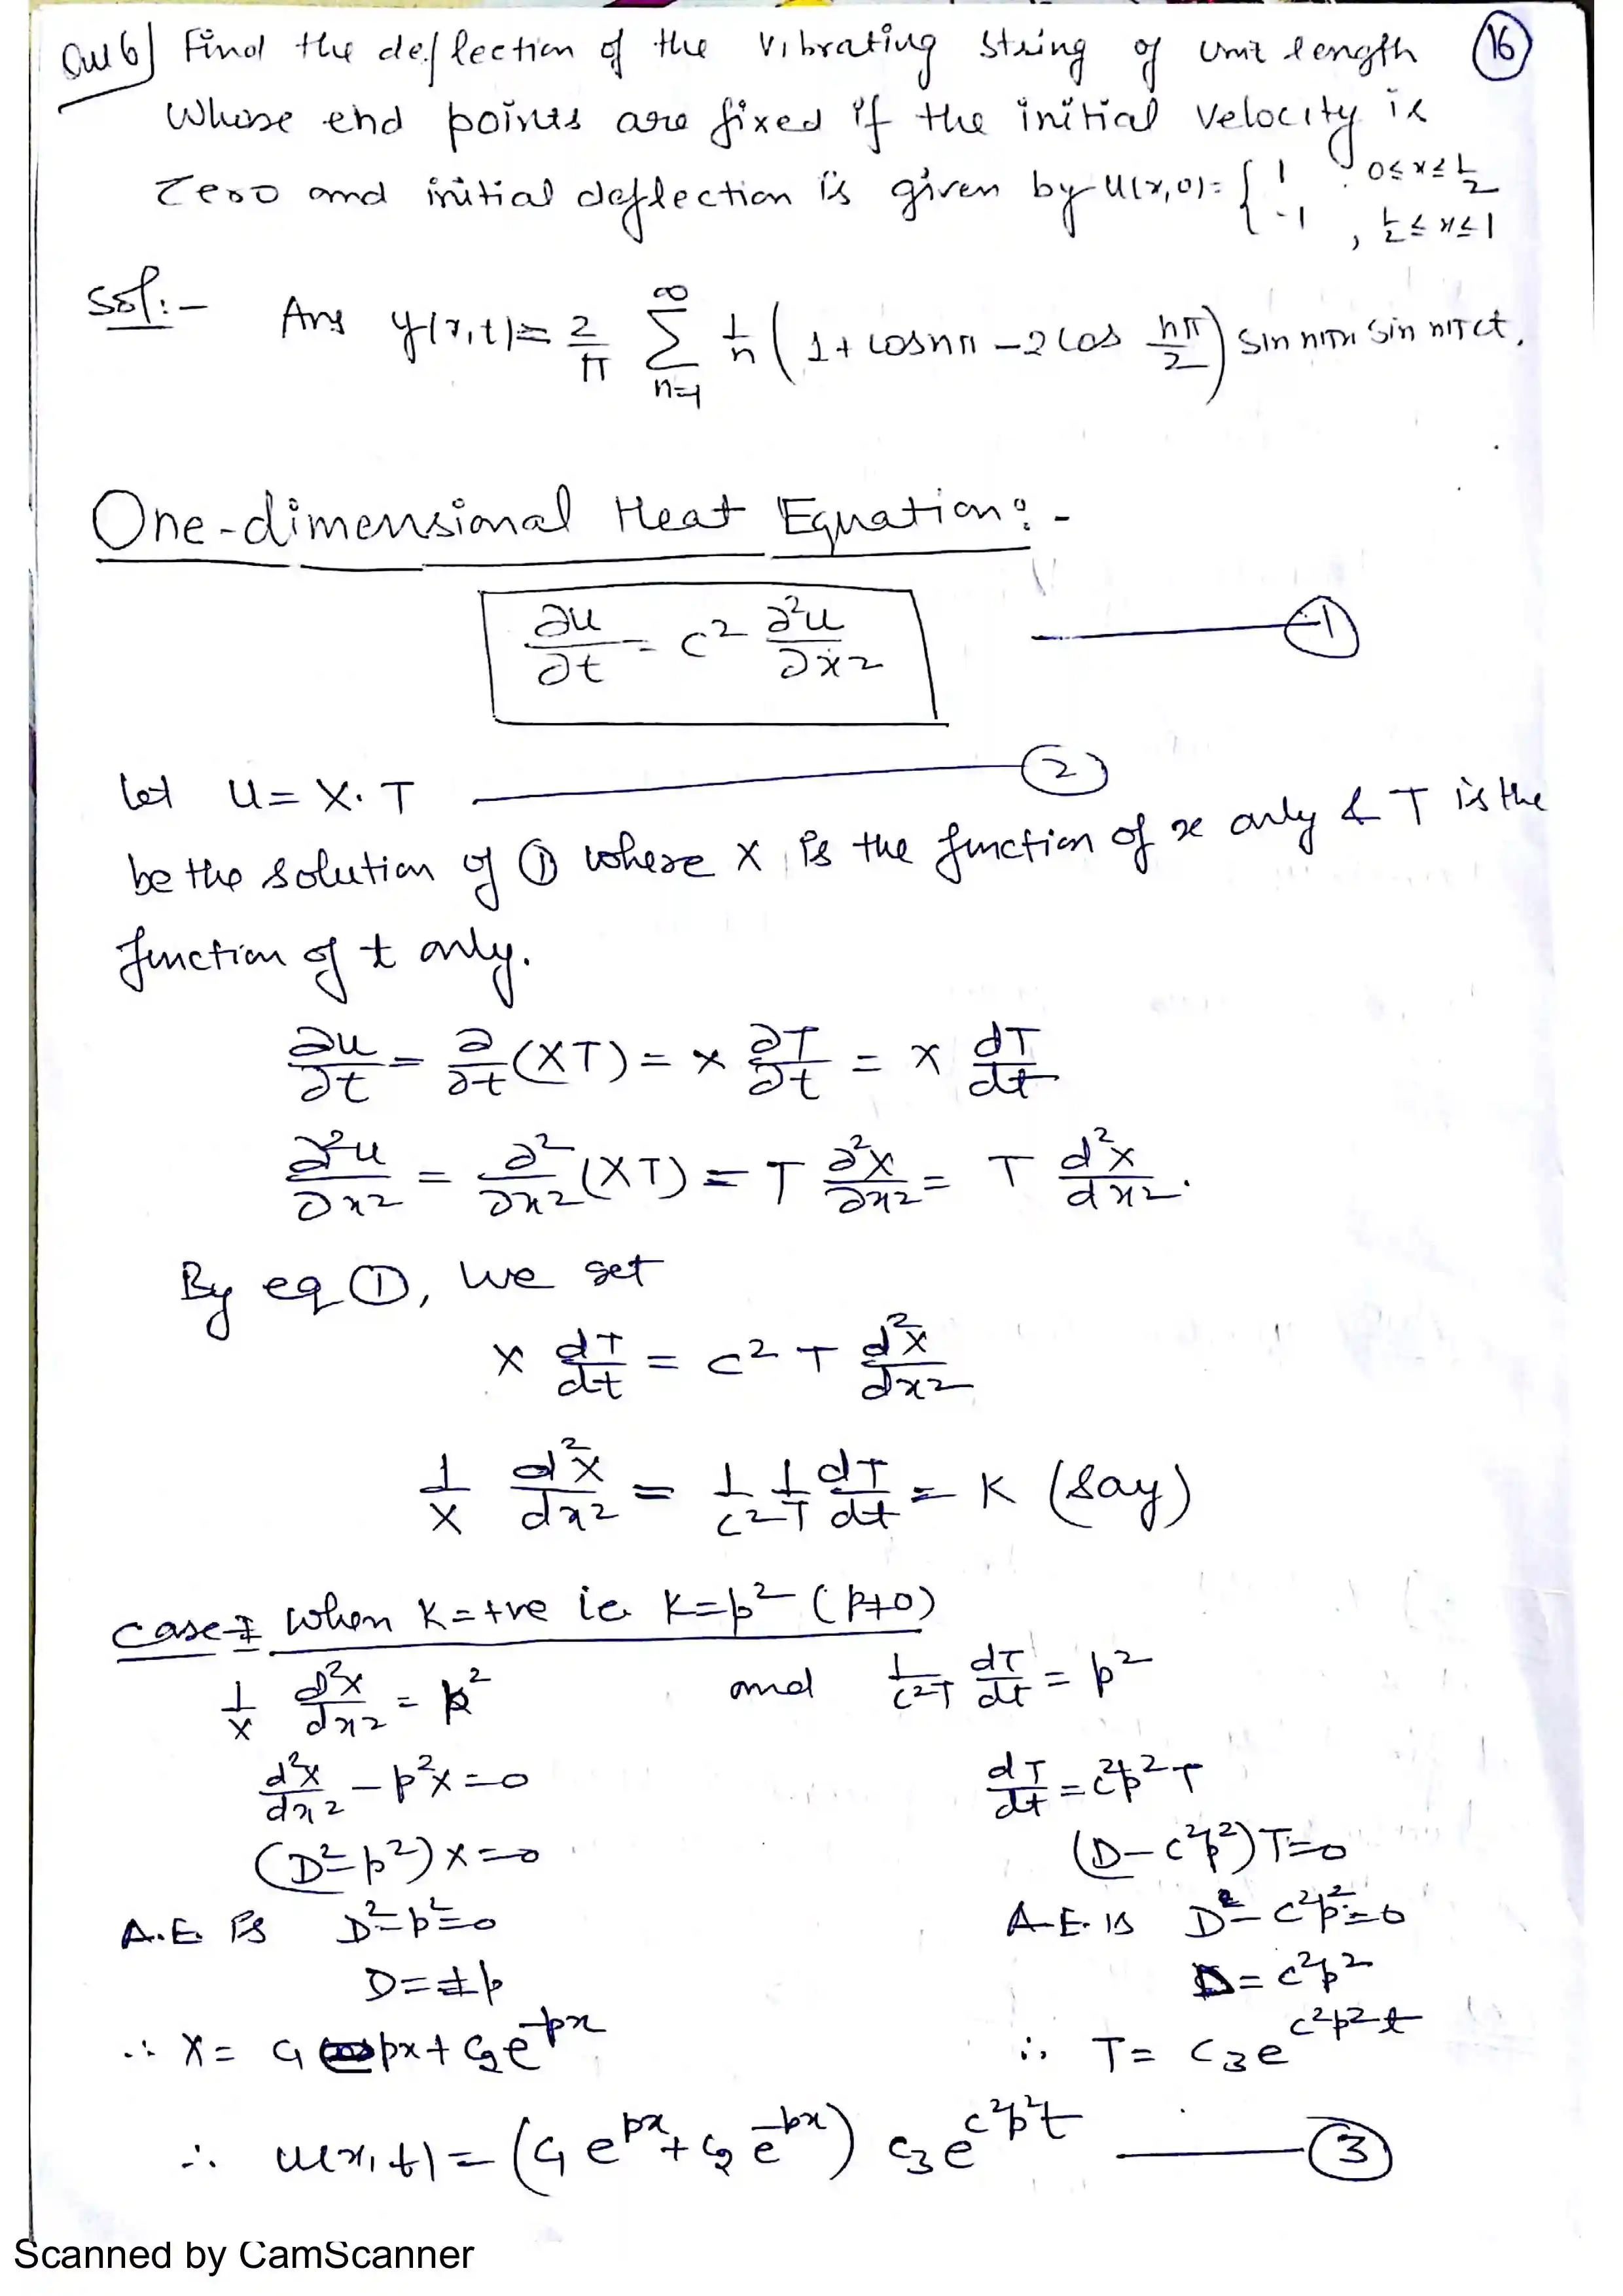 Que 6) Find the deflection of the vibrating string of unit length (16)
whose end points are fixed if the initial velocity is
zero and initial deflection is given by u(x,0) = { 1 , 0≤x≤1/2
-1 , 1/2≤x≤1
Sol:- Ans y(x,t) = 2/π ∑_{n=1}^{∞} 1/n (1+cosnπ -2cos nπ/2) sin nπx sin nπct.
One-dimensional Heat Equation:-
∂u/∂t = c² ∂²u/∂x² ——— (1)
Let u = X.T ——— (2)
be the solution of (1) where X is the function of x only & T is the
function of t only.
∂u/∂t = ∂/∂t (XT) = X ∂T/∂t = X dT/dt
∂²u/∂x² = ∂²/∂x² (XT) = T ∂²X/∂x² = T d²X/dx².
By eq (1), we get
X dT/dt = c² T d²X/dx²
1/X d²X/dx² = 1/c² 1/T dT/dt = K (say)
Case I when K = +ve ie K = p² (p≠0)
1/X d²X/dx² = p² and 1/c²T dT/dt = p²
d²X/dx² - p²X = 0 dT/dt = c²p²T
(D²-p²)X = 0 (D-c²p²)T=0
A.E. is D²-p²=0 A.E. is D-c²p²=0
D = ±p D = c²p²
∴ X = c₁ px + c₂e^{-px} ∴ T = c₃e^{c²p²t}
∴ u(x,t) = (c₁e^{px} + c₂e^{-px}) c₃e^{c²p²t} ——— (3)
Scanned by CamScanner